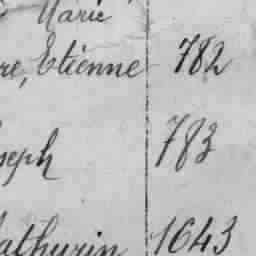 Marie
re, Etienne 782
seph 783
athurin 1643